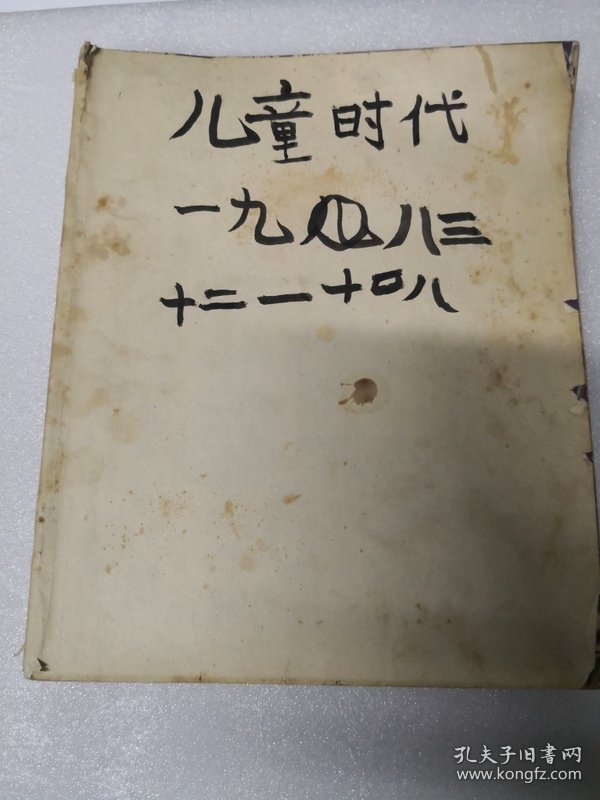 儿童时代
一九八三
十二一十四八
孔夫子旧书网
www.kongfz.com